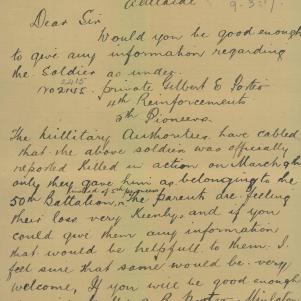 Adelaide 9-3-17.
Dear Sir
Would you be good enough
to give any information regarding
the Soldier as under.
2415
No 2145. Private Gilbert E Foster
11th Reinforcements
5th Pioneers.
The Millitary Authorities have cabled
that the above soldier was officially
reported Killed in action on March 9th
only they gave him as belonging to the
instead of 5th pioneers
50th Battalion, The parents are feeling
their loss very Keenly, and if you
could give them any information
that would be helpfull to them I
feel sure that same would be very
welcome, If you will be good enough